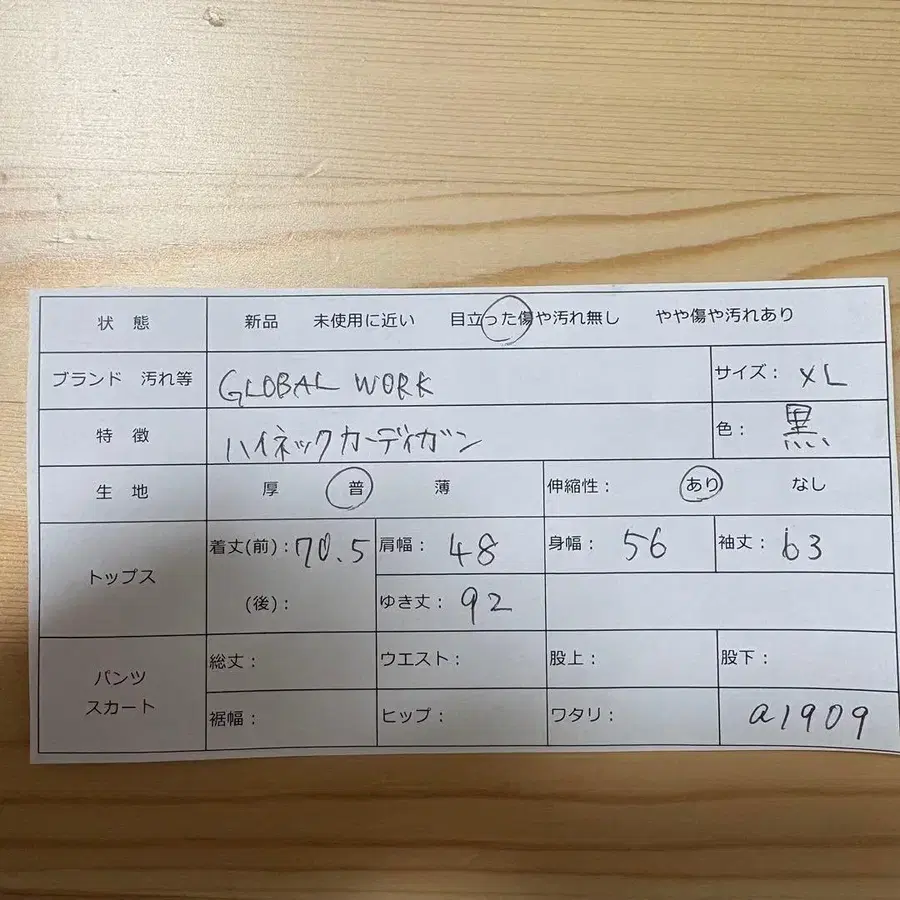 状 態 新品 未使用に近い 目立った傷や汚れ無し やや傷や汚れあり
ブランド 汚れ等 GLOBAL WORK サイズ: XL
特 徴 ハイネックカーディガン 色: 黒
生 地 厚 普 薄 伸縮性: あり なし
トップス 着丈(前): 70.5 肩幅: 48 身幅: 56 袖丈: 63
(後): ゆき丈: 92
パンツ スカート 総丈: ウエスト: 股上: 股下:
裾幅: ヒップ: ワタリ: a1909